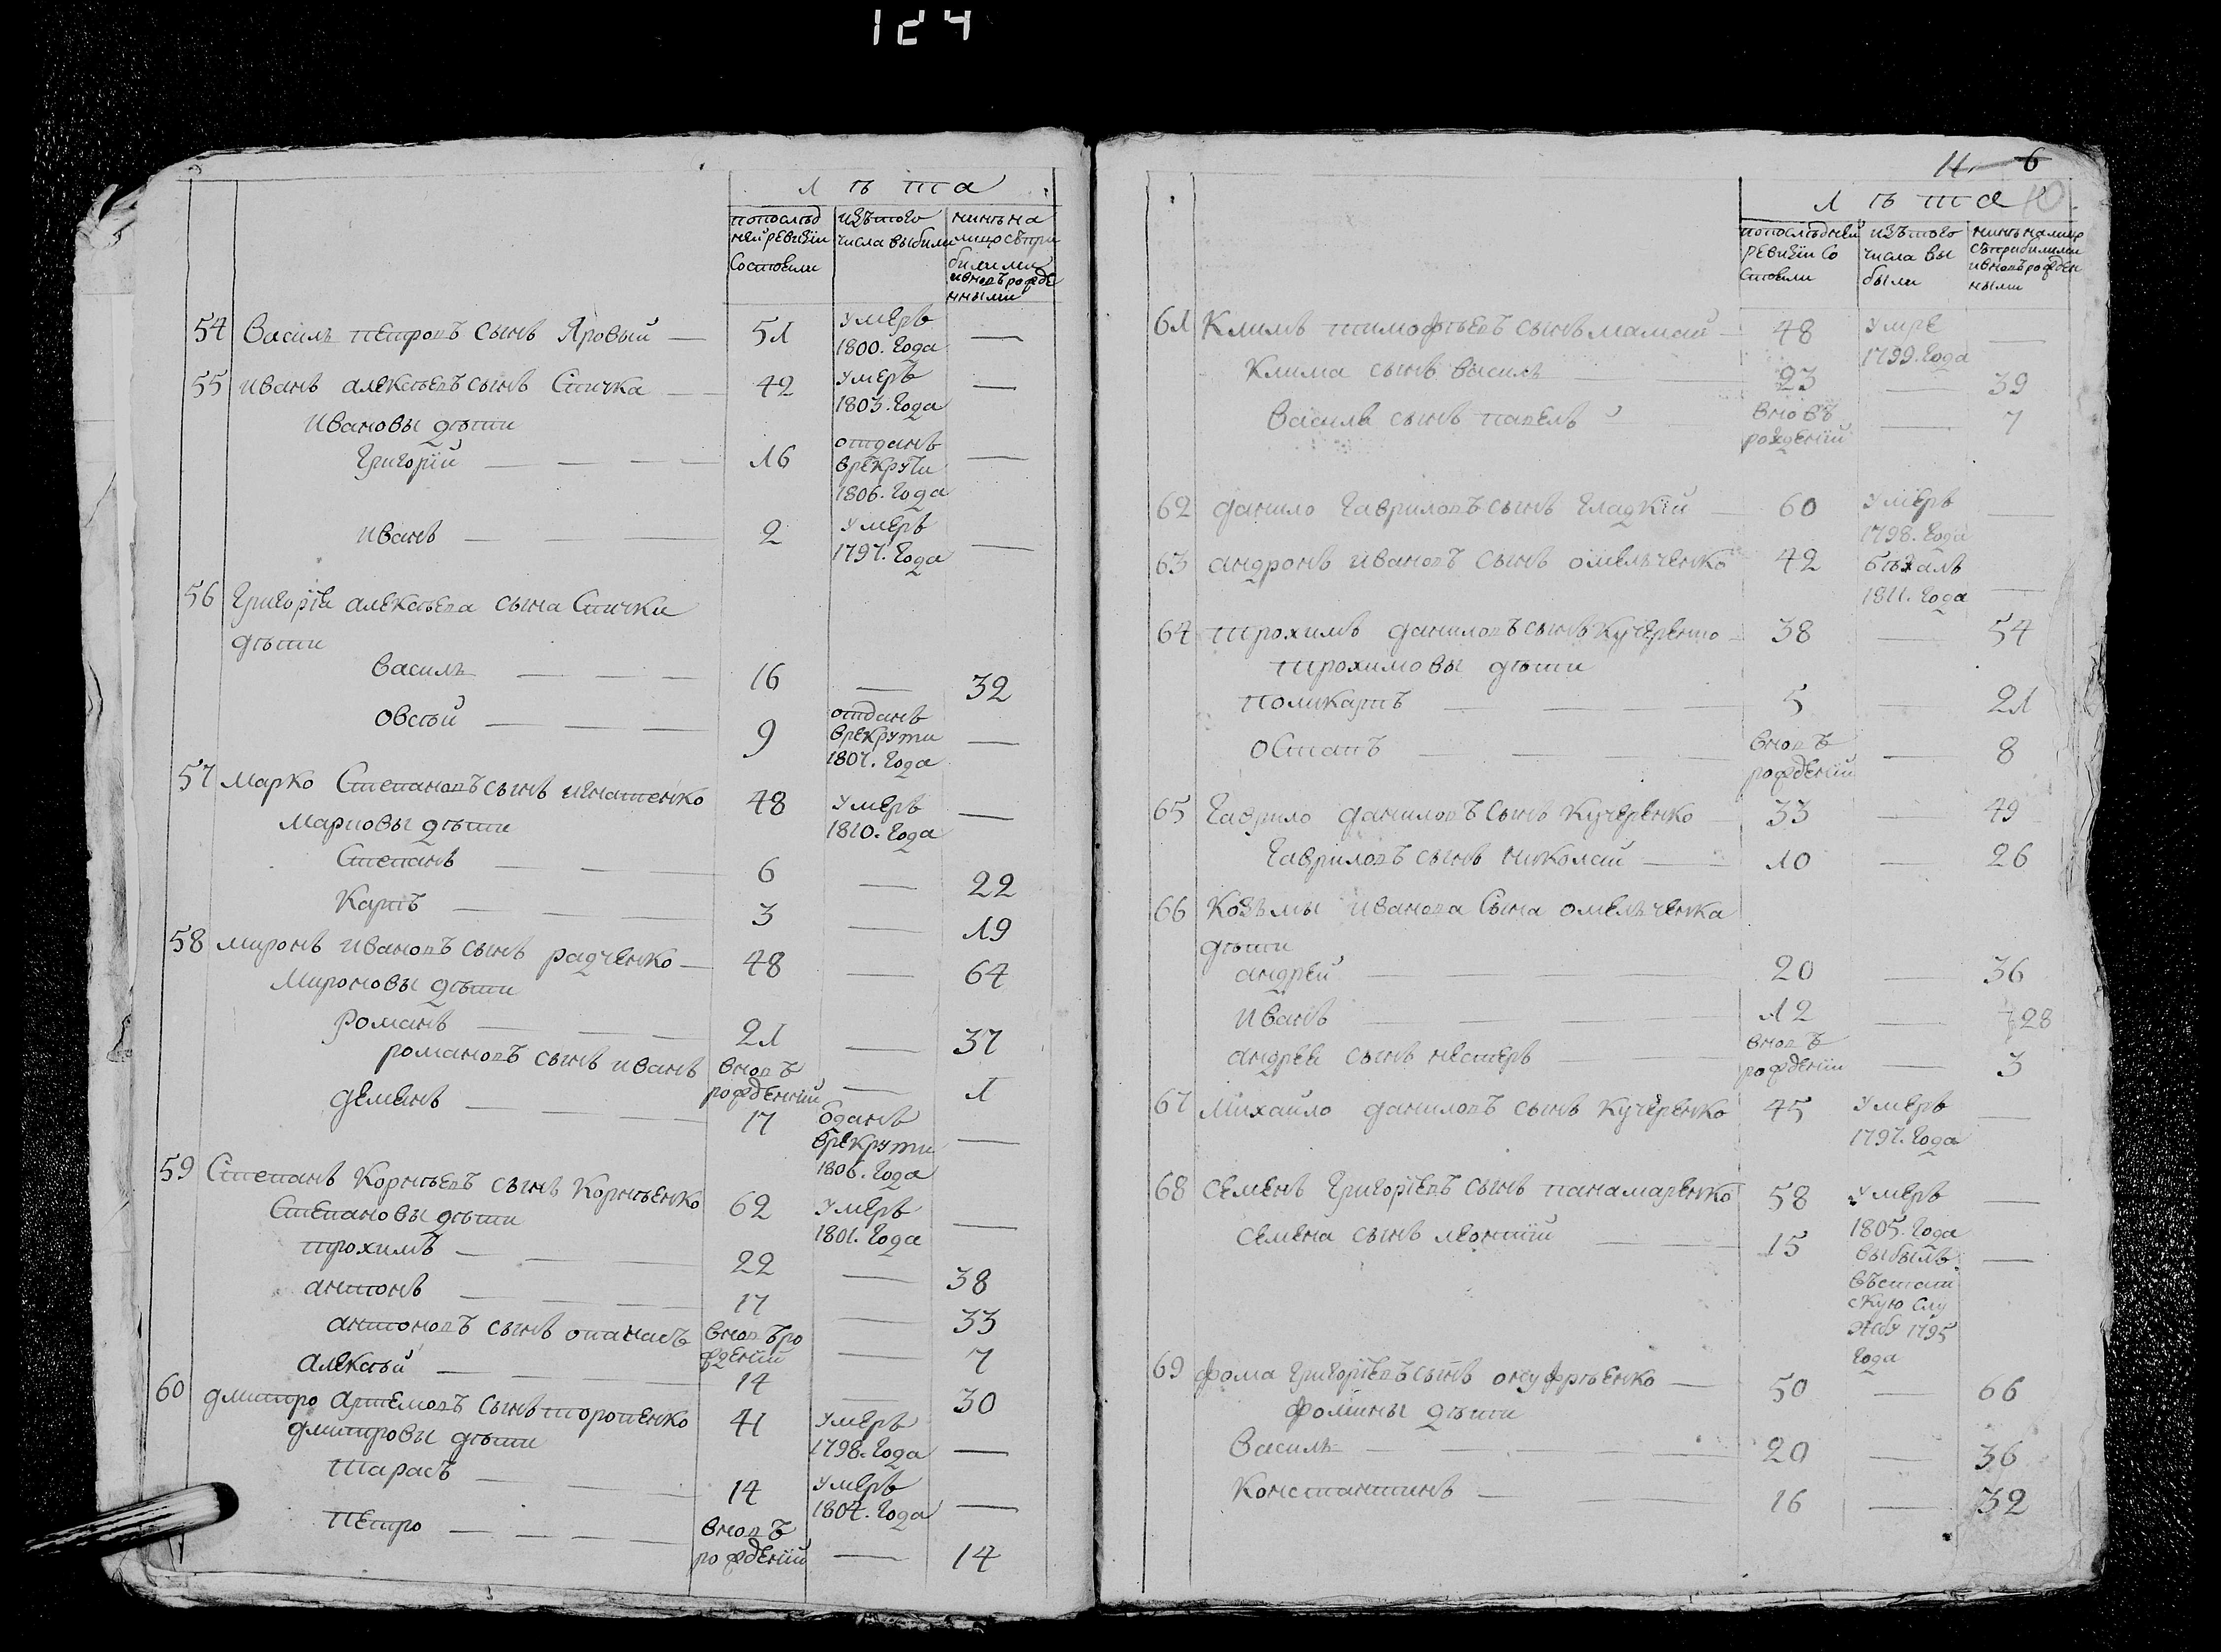 124
лѣта
попослѣд
ней ревизіи
Состояли
изътого
числа выбили
нинѣ на
лицо съпри
билими
ивновъ рожде
нными
54 Василь петровъ сынъ Яровый — 51 умеръ —
1800. Года
55 иванъ алексѣевъ сынъ Спичка — 42 умеръ —
1803. Года
Ивановы дѣти
Григорій — 16 отданъ —
врекрути
1806. Года
иванъ — 2 умеръ —
1797. Года
56 Григорія алексѣева сына Спички
дѣти
василь — 16 — 32
овсѣй — 9 отданъ —
врекрути
1807. Года
57 марко Степановъ сынъ игнатенко 48 умеръ —
1810. Года
Марковы дѣти
Степанъ — 6 — 22
Карпъ — 3 — 19
58 миронъ ивановъ сынъ радченко — 48 — 64
Мироновы дѣти
романъ — 21 — 37
романовъ сынъ иванъ вновъ — 1
рожденній
деменъ — 17 одданъ —
врекрути
1806. Года
59 Степанъ Корнѣевъ сынъ Корнѣенко 62 умеръ —
1801. Года
Степановы дѣти
трохимъ — 22 — 38
антонъ — 17 — 33
антоновъ сынъ опанасъ вновъ ро — 7
жденій
алексѣй — 14 — 30
60 дмитро артемовъ сынъ торопенко 41 умеръ —
1798. Года
дмитровы дѣти
тарасъ — 14 умеръ —
1804. Года
петро — вновъ — 14
рожденій
11 6
10
лѣта
попослѣдней
ревизіи Со
стояли
изътого
числа вы
были
нинѣ налицо
съприбилими
ивновъ рожден
ными
61 Климъ тимофѣевъ сынъ мамай — 48 умре —
1799. Года
Клима сынъ василь — 23 — 39
Василя сынъ павелъ — вновъ — 7
рожденій
62 данило Гавриловъ сынъ Гладкій — 60 умеръ —
1798. Года
63 андронъ ивановъ сынъ омельченко 42 бѣжалъ —
1811. Года
64 трохимъ даниловъ сынъ Кучеренко — 38 — 54
трохимовы дѣти
поликарпъ — 5 — 21
остапъ — вновъ — 8
рожденій
65 Гаврило даниловъ сынъ Кучеренко — 33 — 49
Гавриловъ сынъ николай — 10 — 26
66 Козьмы иванова Сына омельченка
дѣти
андрей — 20 — 36
иванъ — 12 — 28
андрея сынъ нестеръ — вновъ — 3
рожденій
67 Михайло даниловъ сынъ Кучеренко 45 умеръ —
1797. Года
68 семенъ Григоріевъ сынъ панамаренко 58 умеръ —
1805. Года
семена сынъ леонтій — 15 выбылъ —
въстат
скую слу
жбу 1795
Года
69 фома Григоріевъ сынъ онуфрѣенко — 50 — 66
фомины дѣти
Василь — 20 — 36
Константинъ — 16 — 32